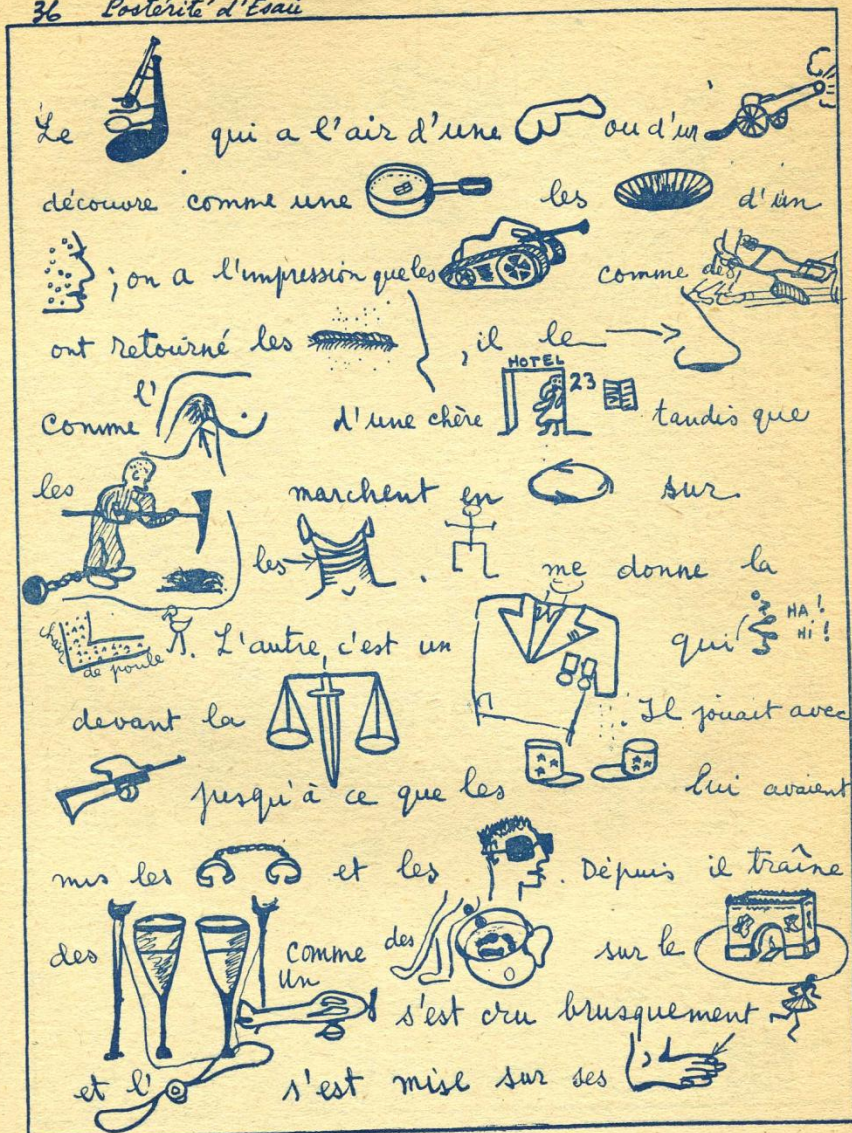 36 Postérité d'Esaü
Le qui a l'air d'une ou d'un
découvre comme une les d'un
; on a l'impression que les comme des
ont retourné les , il le
HOTEL
23
comme l' d'une chère tandis que
les marchent en sur
les . me donne la
chair de poule . L'autre, c'est un qui HA! HI!
devant la . Il jouait avec
jusqu'à ce que les lui avaient
mis les et les . Dépuis il traîne
des comme des sur le
un s'est cru brusquement
et l' s'est mise sur ses